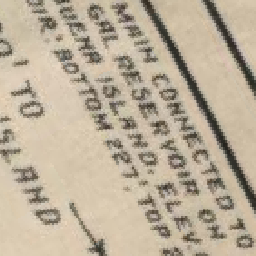 MAIN CONNECTED TO
GAL RESERVOIR ON
BUENA ISLAND. ELEV.
OIR: BOTTOM 227', TOP
0' TO
ISLAND